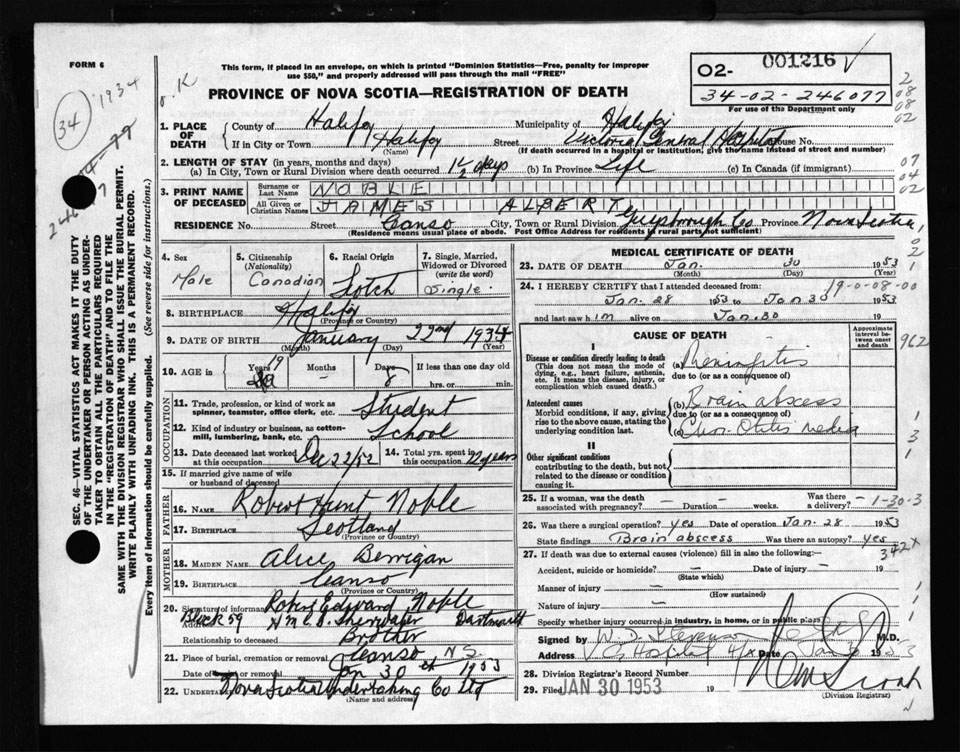 FORM 6
This form, if placed in an envelope, on which is printed "Dominion Statistics—Free, penalty for improper
use $50," and properly addressed will pass through the mail "FREE"
02- 001216
34-02-246077
For use of the Department only
K
34
1934
PROVINCE OF NOVA SCOTIA—REGISTRATION OF DEATH
1. PLACE OF DEATH
County of Halifax Municipality of Halifax
If in City or Town Halifax Street Victoria General Hospital House No.
(Name) (If death occurred in a hospital or institution, give the name instead of street and number)
2. LENGTH OF STAY (in years, months and days)
(a) In City, Town or Rural Division where death occurred 1 1/2 days (b) In Province Life (c) In Canada (if immigrant)
3. PRINT NAME OF DECEASED
Surname or Last Name NOBLE
All Given or Christian Names JAMES ALBERT
RESIDENCE No. Street Canso City, Town or Rural Division Guysborough Co Province Nova Scotia
(Residence means usual place of abode. Post Office Address for residents in rural parts not sufficient)
4. Sex Male
5. Citizenship (Nationality) Canadian
6. Racial Origin Scotch
7. Single, Married, Widowed or Divorced (write the word) Single.
8. BIRTHPLACE Halifax
(Province or Country)
9. DATE OF BIRTH January 22nd 1934
(Month) (Day) (Year)
10. AGE in Years 19 Months - Days 8 If less than one day
hrs. or min.
OCCUPATION
11. Trade, profession, or kind of work as spinner, teamster, office clerk, etc. Student
12. Kind of industry or business, as cotton-mill, lumbering, bank, etc. School
13. Date deceased last worked at this occupation Dec 22/52
14. Total yrs. spent in this occupation 12 years
15. If married give name of wife or husband of deceased
FATHER
16. NAME Robert Hunt Noble
17. BIRTHPLACE Scotland
(Province or Country)
MOTHER
18. MAIDEN NAME Alice Berrigan
19. BIRTHPLACE Canso
(Province or Country)
20. Signature of informant Robert Edward Noble
Address Block 59 H.M.C.S. Shearwater Dartmouth
Relationship to deceased Brother
21. Place of burial, cremation or removal Canso N S
Date of burial or removal Jan 30th 1953
22. UNDERTAKER Nova Scotia Undertaking Co Ltd
(Name and address)
MEDICAL CERTIFICATE OF DEATH
23. DATE OF DEATH Jan. 30 1953
(Month) (Day) (Year)
24. I HEREBY CERTIFY that I attended deceased from:
19-0-08-00
Jan. 28 1953 to Jan 30 1953
and last saw him alive on Jan. 30
CAUSE OF DEATH
Approximate interval between onset and death
I
Disease or condition directly leading to death
(This does not mean the mode of dying, e.g., heart failure, asthenia, etc. It means the disease, injury, or complication which caused death.)
(a) Meningitis
due to (or as a consequence of)
Antecedent causes
Morbid conditions, if any, giving rise to the above cause, stating the underlying condition last.
(b) Brain abscess
due to (or as a consequence of)
(c) Chron. Otitis media
II
Other significant conditions
contributing to the death, but not related to the disease or condition causing it.
25. If a woman, was the death associated with pregnancy? - Duration - weeks. Was there a delivery? -
1-30-3
26. Was there a surgical operation? yes Date of operation Jan. 28 1953
State findings Brain abscess Was there an autopsy? yes
27. If death was due to external causes (violence) fill in also the following:—
342X
Accident, suicide or homicide? - Date of injury - 19
(State which)
Manner of injury -
(How sustained)
Nature of injury -
Specify whether injury occurred in industry, in home, or in public place
Signed by M.D.
Address V G Hospital Hfx Date Jan 30 1953
28. Division Registrar's Record Number
29. Filed JAN 30 1953 19
(Division Registrar)
SEC. 46—VITAL STATISTICS ACT MAKES IT THE DUTY
OF THE UNDERTAKER OR PERSON ACTING AS UNDERTAKER
TO OBTAIN ALL THE PARTICULARS REQUIRED
IN THE "REGISTRATION OF DEATH" AND TO FILE THE
SAME WITH THE DIVISION REGISTRAR WHO SHALL ISSUE THE BURIAL PERMIT.
WRITE PLAINLY WITH UNFADING INK. THIS IS A PERMANENT RECORD.
Every item of information should be carefully supplied. (See reverse side for instructions.)
2
08
08
02
07
04
02
02
1
962
1
3
1